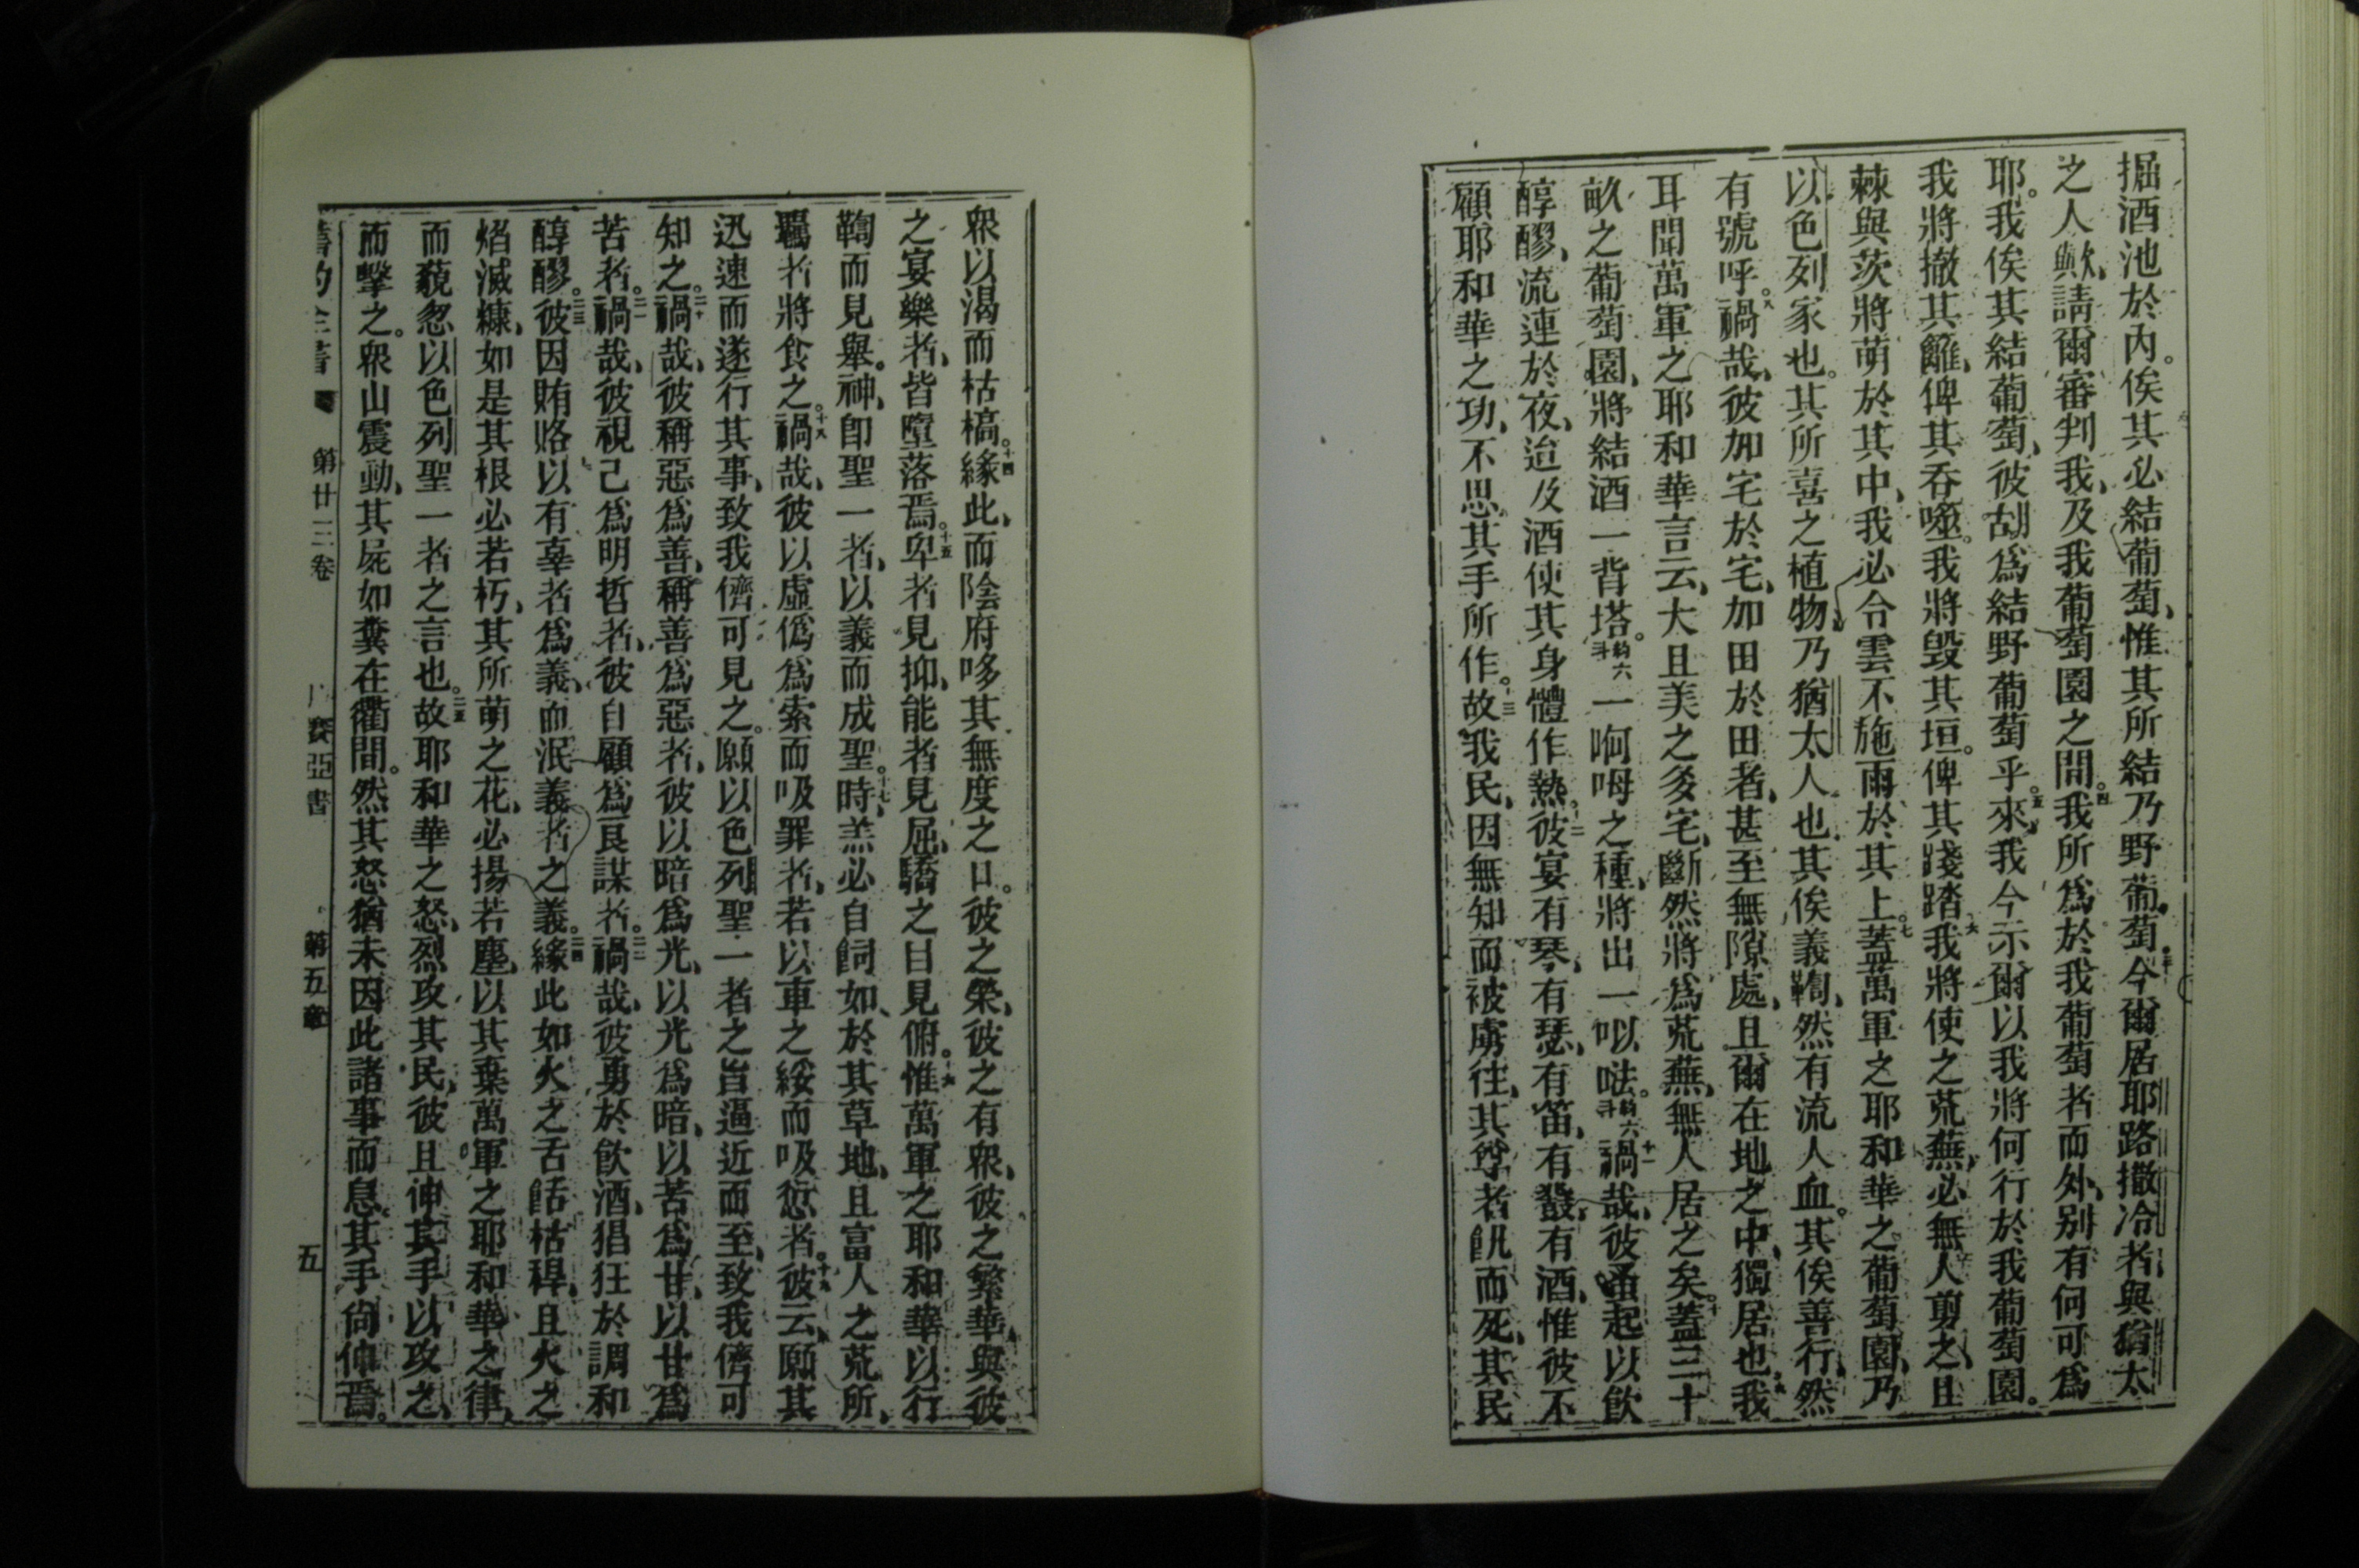 掘酒池於內。俟其必結葡萄、惟其所結乃野葡萄。三今爾居耶路撒冷者、與猶太
之人歟、請爾審判我、及我葡萄園之間。四我所爲於我葡萄者而外、别有何可爲
耶。我俟其結葡萄、彼胡爲結野葡萄乎。五來、我今示爾以我將何行於我葡萄園。
我將撤其籬、俾其吞噬。我將毀其垣。俾其踐踏。六我將使之荒蕪、必無人剪之、且
棘與茨將萌於其中、我必令雲不施雨於其上。七蓋萬軍之耶和華之葡萄園、乃
以色列家也。其所喜之植物乃猶太人也。其俟義鞫、然有流人血。其俟善行、然
有號呼。八禍哉、彼加宅於宅、加田於田者、甚至無隙處、且爾在地之中、獨居也。九我
耳聞萬軍之耶和華言云、大且美之多宅、斷然將爲荒蕪、無人居之矣。十蓋三十
畝之葡萄園、將結酒一背塔。約六斗一啊呣之種、將出一㕥㕸。約六斗十一禍哉、彼蚤起以飲
醇醪、流連於夜、迨及酒使其身體作熱。十二彼宴有琴、有瑟、有笛、有鼗、有酒、惟彼不
顧耶和華之功、不思其手所作。十三故我民、因無知而被虜往、其尊者飢而死、其民
眾以渴而枯槁。十四緣此、而陰府哆其無度之口。彼之榮、彼之有眾、彼之繁華、與彼
之宴樂者、皆墮落焉。十五卑者見抑、能者見屈、驕之目見俯。十六惟萬軍之耶和華以行
鞫而見舉。神、卽聖一者、以義而成聖。十七時、羔必自飼如於其草地、且富人之荒所、
羈者將食之。十八禍哉、彼以虛僞爲索而吸罪者、若以車之綏而吸愆者。十九彼云、願其
迅速而遂行其事、致我儕可見之。願以色列聖一者之旨逼近而至、致我儕可
知之。二十禍哉、彼稱惡爲善、稱善爲惡者、彼以暗爲光、以光爲暗、以苦爲甘、以甘爲
苦者。二一禍哉、彼視己爲明哲者、彼自顧爲良謀者。二二禍哉、彼勇於飲酒、猖狂於調和
醇醪。二三彼因賄賂以有辜者爲義、而泯義者之義。二四緣此如火之舌餂枯稈、且火之
焰滅糠、如是其根必若朽、其所萌之花、必揚若塵、以其棄萬軍之耶和華之律、
而藐忽以色列聖一者之言也。二五故耶和華之怒、烈攻其民、彼且伸其手以攻之、
而擊之。眾山震動、其屍如糞在衢間。然其怒猶未因此諸事而息。其手尙伸焉。
舊約全書 第廿三卷 賽亞書 第五章 五